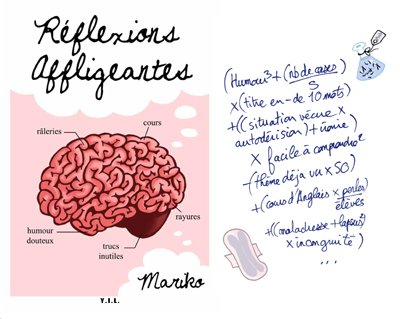 Réflexions
Affligeantes
cours
râleries
rayures
humour
douteux
trucs
inutiles
Mariko
Y.I.L.
(Humour³+(nb de cases)
5
x(titre en-de 10 mots)
+((situation vécue x
autodérision)+ironie)
x facile à comprendre²
-(thème déjà vu x 50)
+(cours d'Anglais x perles)
élèves
+((maladresse+lapsus²)
x incongruité)
...